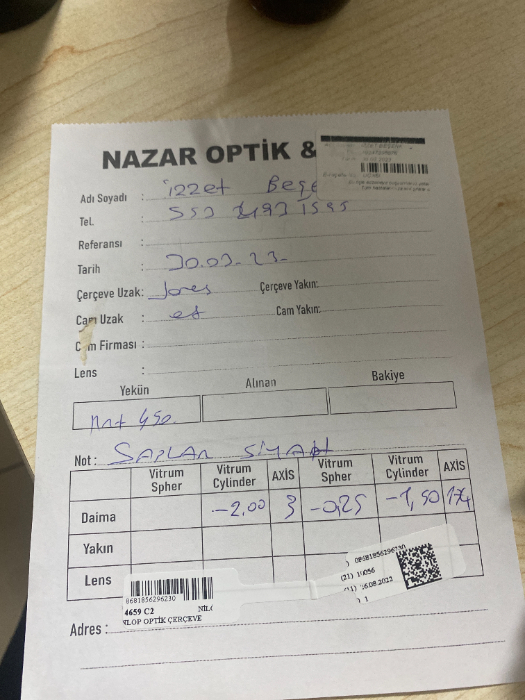 NAZAR OPTİK &
Adı Soyadı : izzet Beşe
Tel. :
Referansı :
Tarih : 30.03.23-
Çerçeve Uzak: Jones Çerçeve Yakın:
Cam Uzak : Cam Yakın:
C m Firması :
Lens :
Yekün Alınan Bakiye
Nakt 450.
Not: SAPLAR SİYAH
Vitrum Spher Vitrum Cylinder AXİS Vitrum Spher Vitrum Cylinder AXİS
Daima -2,00 3 -0,25 -1,50 174
Yakın
Lens
8681856296230
4659 C2
OPTİK ÇERÇEVE
Adres :